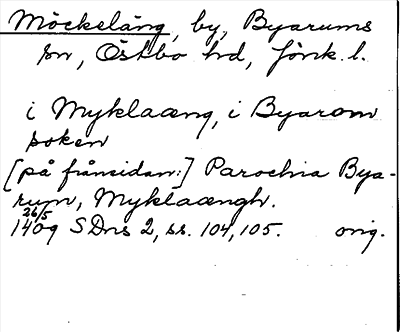 Möckeläng, by, Byarums
sn, Östbo hd, Jönk. l.
i Myklaæng, i Byarom
soken
[på frånsidan:] Parochia Bya-
rum, Myklaængh.
26/5
1409 SDns 2, ss. 104, 105. orig.